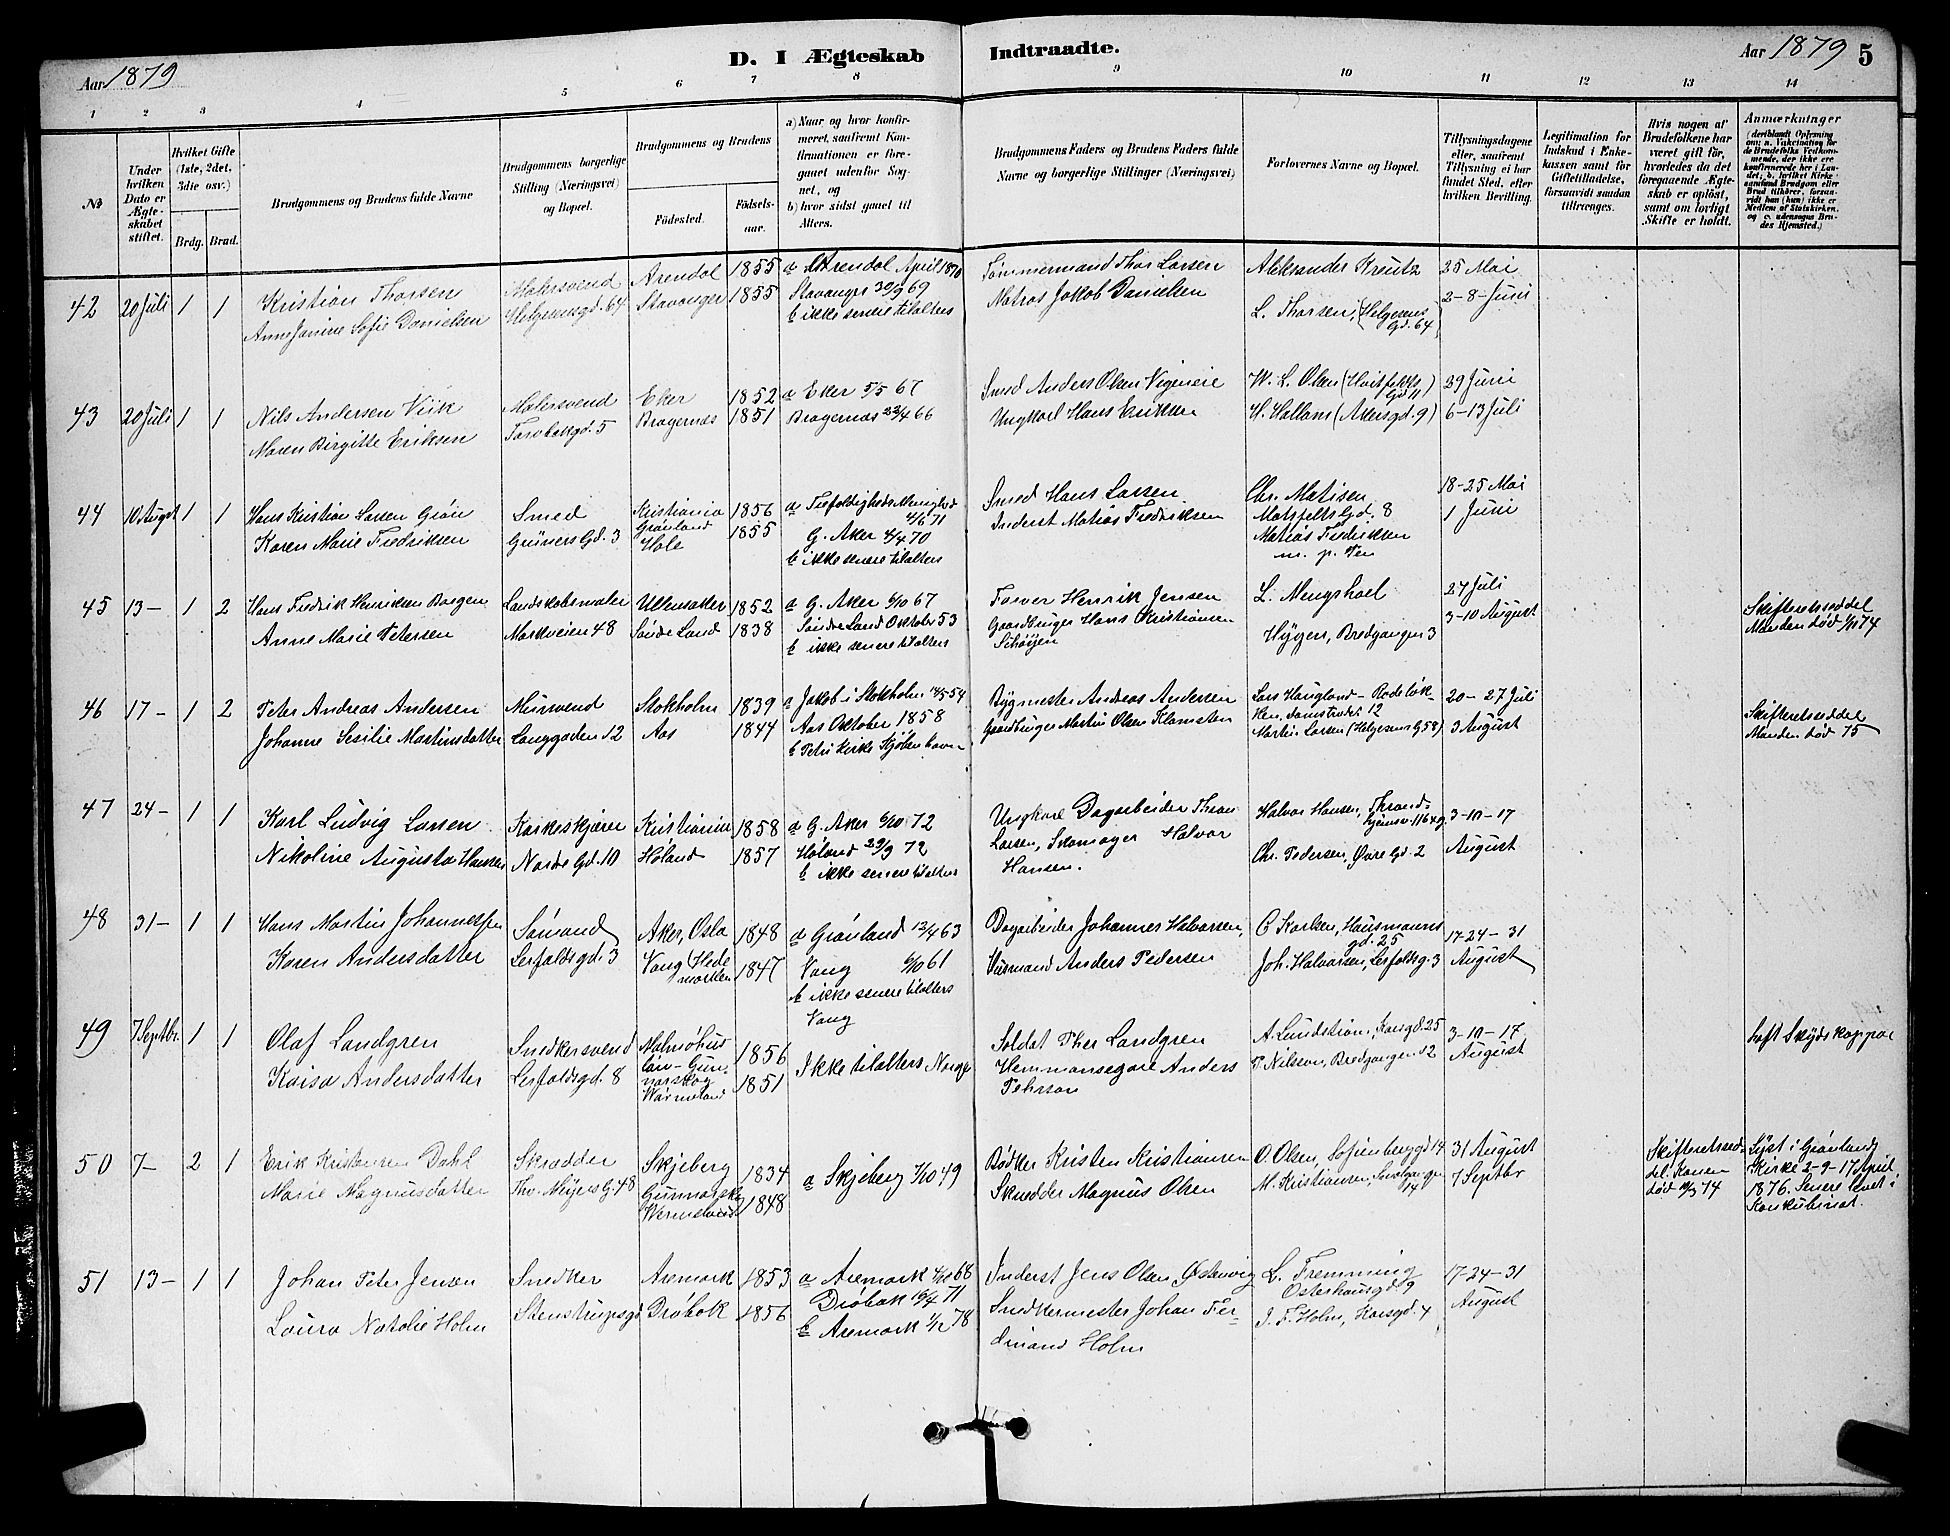 Aar 1879
D. I Ægteskab Indtraadte.
Aar 1879 5
1 2 3 4 5 6 7 8 9 10 11 12 13 14
No
Under hvilken Dato er Ægteskabet stiftet.
Hvilket Gifte (1ste, 2det, 3die osv.)
Brdg. Brud.
Brudgommens og Brudens fulde Navne
Brudgommens borgerlige Stilling (Næringsvei) og Bopæl.
Brudgommens og Brudens
Födested.
Födselsaar.
a) Naar og hvor konfirmeret, saafremt Konfirmationen er foregaaet udenfor Sognet, og
b) hvor sidst gaaet til Alters.
Brudgommens Faders og Brudens Faders fulde Navne og borgerlige Stillinger (Næringsvei)
Forlovernes Navne og Bopæl.
Tillysningsdagene eller, saafremt Tillysning ei har fundet Sted, efter hvilken Bevilling.
Legitimation for Indskud i Enkekassen samt for Giftetilladelse, forsaavidt saadan tiltrænges.
Hvis nogen af Brudefolkene har været gift för, hvorledes da det foregaaende Ægteskab er oplöst, samt om lovligt Skifte er holdt.
Anmærkninger
(deriblandt Oplysning om: a. Vaccination for de Brudefolks Vedkommende, der ikke ere konfirmerede her i Landet; b. hvilket Kirkesamfund Brudgom eller Brud tilhörer, forsaavidt han (hun) ikke er Medlem af Statskirken, og c. udensogns Brudes Hjemsted.)
42 20 Juli 1 1
Kristian Thorsen
Anne Janine Sofie Danielsen
Malersvend
Helgesensgd. 64
Arendal 1855
Stavanger 1855
a Arendal April 1870
Stavanger 30/9 69
b ikke senere tilalters
Tømmermand Thor Larsen
Matros Jakob Danielsen
Aleksander Kreutz
L. Thorsen, (Helgesens Gd. 64)
25 Mai
2-8-Juni
43 20 Juli 1 1
Nils Andersen Viik
Maren Birgitte Eriksen
Malersvend
Torvbakgd. 5
Eker 1852
Bragernæs 1851
a Eker 5/5 67
Bragernæs 22/4 66
Smed Anders Olsen
Ungkarl Hans Eriksen
W. L. Olsen (Hvitfeldts Gd 11)
H. Halland (Akersgd. 9)
29 Juni
6-13 Juli
44 10 August 1 1
Hans Kristian Larsen Grøn
Karen Marie Fredriksen
Smed
Grüners Gd. 3
Kristiania Grønland 1856
Hole 1855
a Trefoldigheds Menighed 4/6 71
G. Aker 4/4 70
b ikke senere tilalters
Smed Hans Larsen
Inderst Matias Fredriksen
Chr. Matisen
Gd. 8
Matias Fredriksen
m. p. Pen
18-25 Mai
1 Juni
45 13- 1 2
Hans Fredrik Henriksen Borgen
Anne Marie Petersen
Landskabsmaler
Markveien 48
Ullensaker 1852
Søndre Land 1838
a G. Aker 6/10 67
Søndre Land Oktober 53
b ikke senere tilalters
Farver Henrik Jensen
Gaardbruger Hans Kristiansen
Schøyen
L. Mengshoel
Hygen, Bredgangen 3
27 Juli
3-10 August
Skifteretsseddel
Manden død 1/11 74
46 17- 1 2
Peter Andreas Andersen
Johanne Sesilie Martinsdatter
Mursvend
Langgaden 12
Stokholm 1839
Aas 1844
a Jakob i Stokholm 14/5 54
Aas Oktober 1858
b Petri Kirke Kjøbenhavn
Bygmester Andreas Andersen
Gaardbruger Martin Olsen
Lars Haugland - Rodeløkken, 12
Martin Larsen (Helgesens G 58)
20-27 Juli
3 August
Skifteretsseddel
Manden død 75
47 24- 1 1
Karl Ludvig Larsen
Nikoline Augusta Hansen
Karkeskjærer
Nordre Gd. 10
Kristiania 1858
Høland 1857
a G. Aker 6/10 72
Høland 29/9 72
b ikke senere tilalters
Ungkarl Dagarbeider Thron
Larsen, Skomager Halvor
Hansen.
Halvor Hansen,
Chr. Pedersen, Øvre Gd. 2
3-10-17
August
48 31- 1 1
Hans Martin Johannessen
Karen Andersdatter
Sømand
Lerfaldsgd. 3
Aker, Oslo 1848
Vang Hedemarken 1847
a Grønland 12/4 63
Vang 6/10 61
b ikke senere tilalters
Vang
Dagarbeider Johannes Halvorsen,
Husmand Anders Pedersen
C Karlsen, Hausmanns gd. 25
Joh. Halvorsen, Lerfaldsg. 3
17-24-31
August
49 7 Septbr. 1 1
Olaf Landgren
Kaisa Andersdatter
Snedkersvend
Lerfaldsgd. 8
Malmøhus Län - Gunnarskog Wärmeland
1856
1851
Ikke tilalters Norge
Soldat Pher Landgren
Hemmansegare Anders
Pehrson
A. Lundström, Korsgd. 25
P. Nilsson, Bredgangen 12
3-10-17
August
haft Skydskopper
50 7- 2 1
Erik Kristensen Dahl
Marie Magnusdatter
Skrædder
Thv. Meyers G. 48
Skjeberg 1834
Gunnarskog Wermeland 1848
a Skjeberg 7/10 49
Bødker Kristen Kristiansen
Skrædder Magnus Olsen
O. Olsen, Sofienberggd 14
M. Kristiansen, 14
31 August
7 Septbr
Skifteretsseddel. Konen
død 19/3 74
Lyst i Grønlands
Kirke 2-9-17 April
1876. Senere levet i
Konkubinat.
51 13- 1 1
Johan Peter Jensen
Laura Natalie Holm
Snedker
Stenstrupsgd
Aremark 1853
Drøbak 1856
a Aremark 4/10 68
Drøbak 16/4 71
b Aremark 1/12 78
Inderst Jens Olsen
Snedkermester Johan Fer-
dinand Holm
L. Fremming
Osterhausgd. 9
J. F. Holm, Korsgd. 4
17-24-31
August